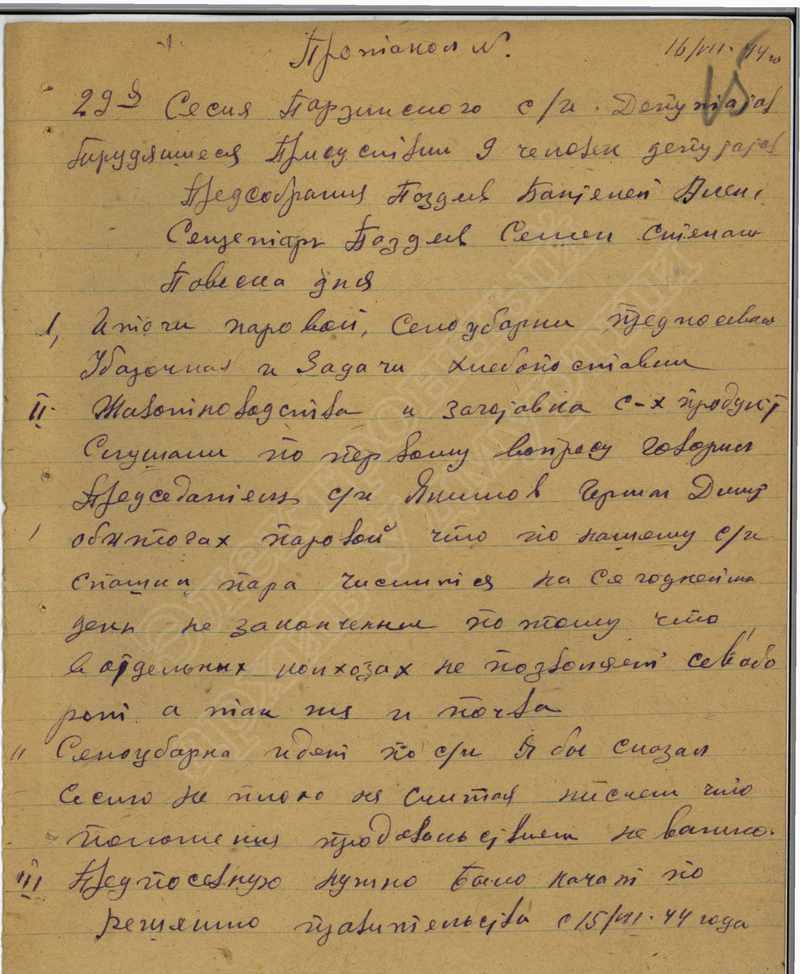 Протокол №.
16/VII-44 го
15
29я Сесия Парзинского с/с. Депутатов
трудящиеся Присуствии 9 человек депутатов
Предсобрания Поздеев Пантелей Алек.
Секретарь Поздеев Семен Степан
Повеска дня
I, Итоги паровой, Сеноуборки предпосевная
Уборочная и Задачи хлебопоставки
II. Жывотноводства и заготовка с-х продукт
Слушали по первому вопросу говорил
Председатель с/с Якимов Герман Дмит
обитогах паровой что по нашему с/с
спашки пара числится на Сягоднейша
день не закончении потому что
в отдельных колхозах не позволяет севобо
рот а так жа и почва
II Сеноуборка идет по с/с Я бы сказал
не плохо не считая
положения продовольствием неважно.
III Предпосевную нужно было начат по
Решянию правительства с 15/VII-44 года